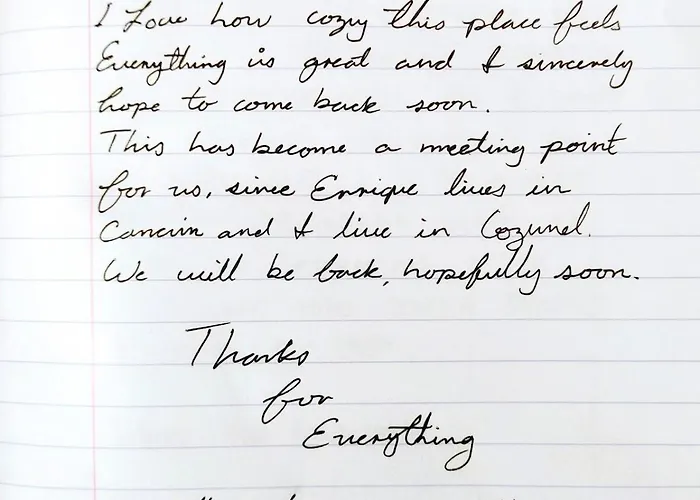 I Love how cozy this place feels
Everything is great and I sincerely
hope to come back soon.
This has become a meeting point
for us, since Enrique lives in
Cancún and I live in Cozumel.
We will be back, hopefully soon.
Thanks
for
Everything